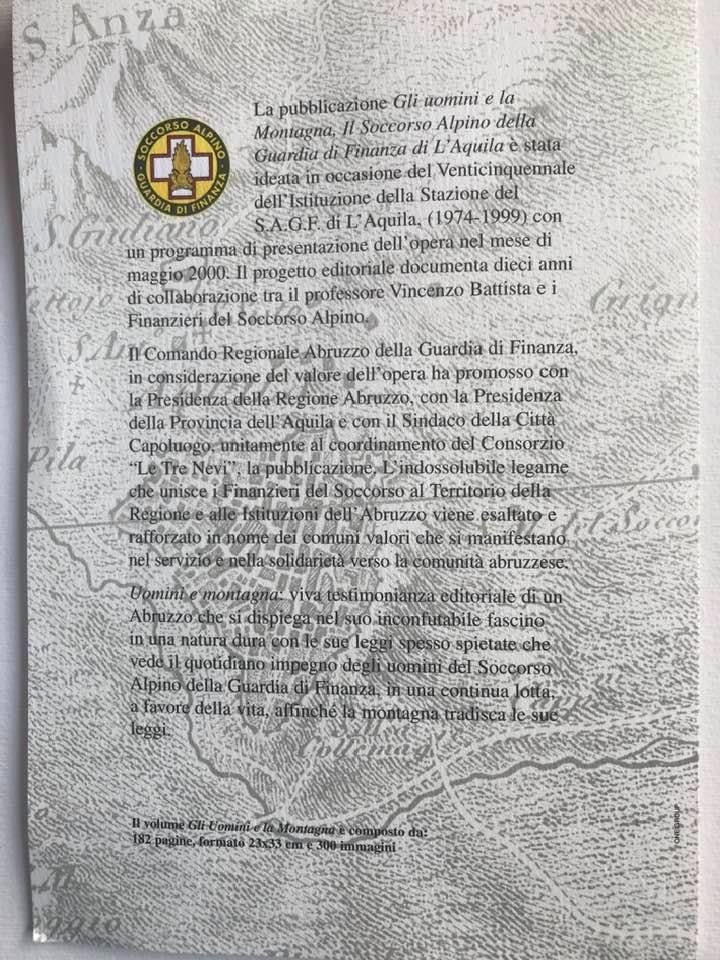 S. Anza
SOCCORSO ALPINO
GUARDIA DI FINANZA
La pubblicazione Gli uomini e la
Montagna, Il Soccorso Alpino della
Guardia di Finanza di L'Aquila è stata
ideata in occasione del Venticinquennale
dell'Istituzione della Stazione del
S.A.G.F. di L'Aquila, (1974-1999) con
un programma di presentazione dell'opera nel mese di
maggio 2000. Il progetto editoriale documenta dieci anni
di collaborazione tra il professore Vincenzo Battista e i
Finanzieri del Soccorso Alpino.
S. Giuliano
Il Comando Regionale Abruzzo della Guardia di Finanza,
in considerazione del valore dell'opera ha promosso con
la Presidenza della Regione Abruzzo, con la Presidenza
della Provincia dell'Aquila e con il Sindaco della Città
Capoluogo, unitamente al coordinamento del Consorzio
"Le Tre Nevi", la pubblicazione. L'indossolubile legame
che unisce i Finanzieri del Soccorso al Territorio della
Regione e alle Istituzioni dell'Abruzzo viene esaltato e
rafforzato in nome dei comuni valori che si manifestano
nel servizio e nella solidarietà verso la comunità abruzzese.
Pila
Uomini e montagna: viva testimonianza editoriale di un
Abruzzo che si dispiega nel suo inconfutabile fascino
in una natura dura con le sue leggi spesso spietate che
vede il quotidiano impegno degli uomini del Soccorso
Alpino della Guardia di Finanza, in una continua lotta,
a favore della vita, affinché la montagna tradisca le sue
leggi.
Collemag
Il volume Gli Uomini e la Montagna è composto da:
182 pagine, formato 23x33 cm e 300 immagini